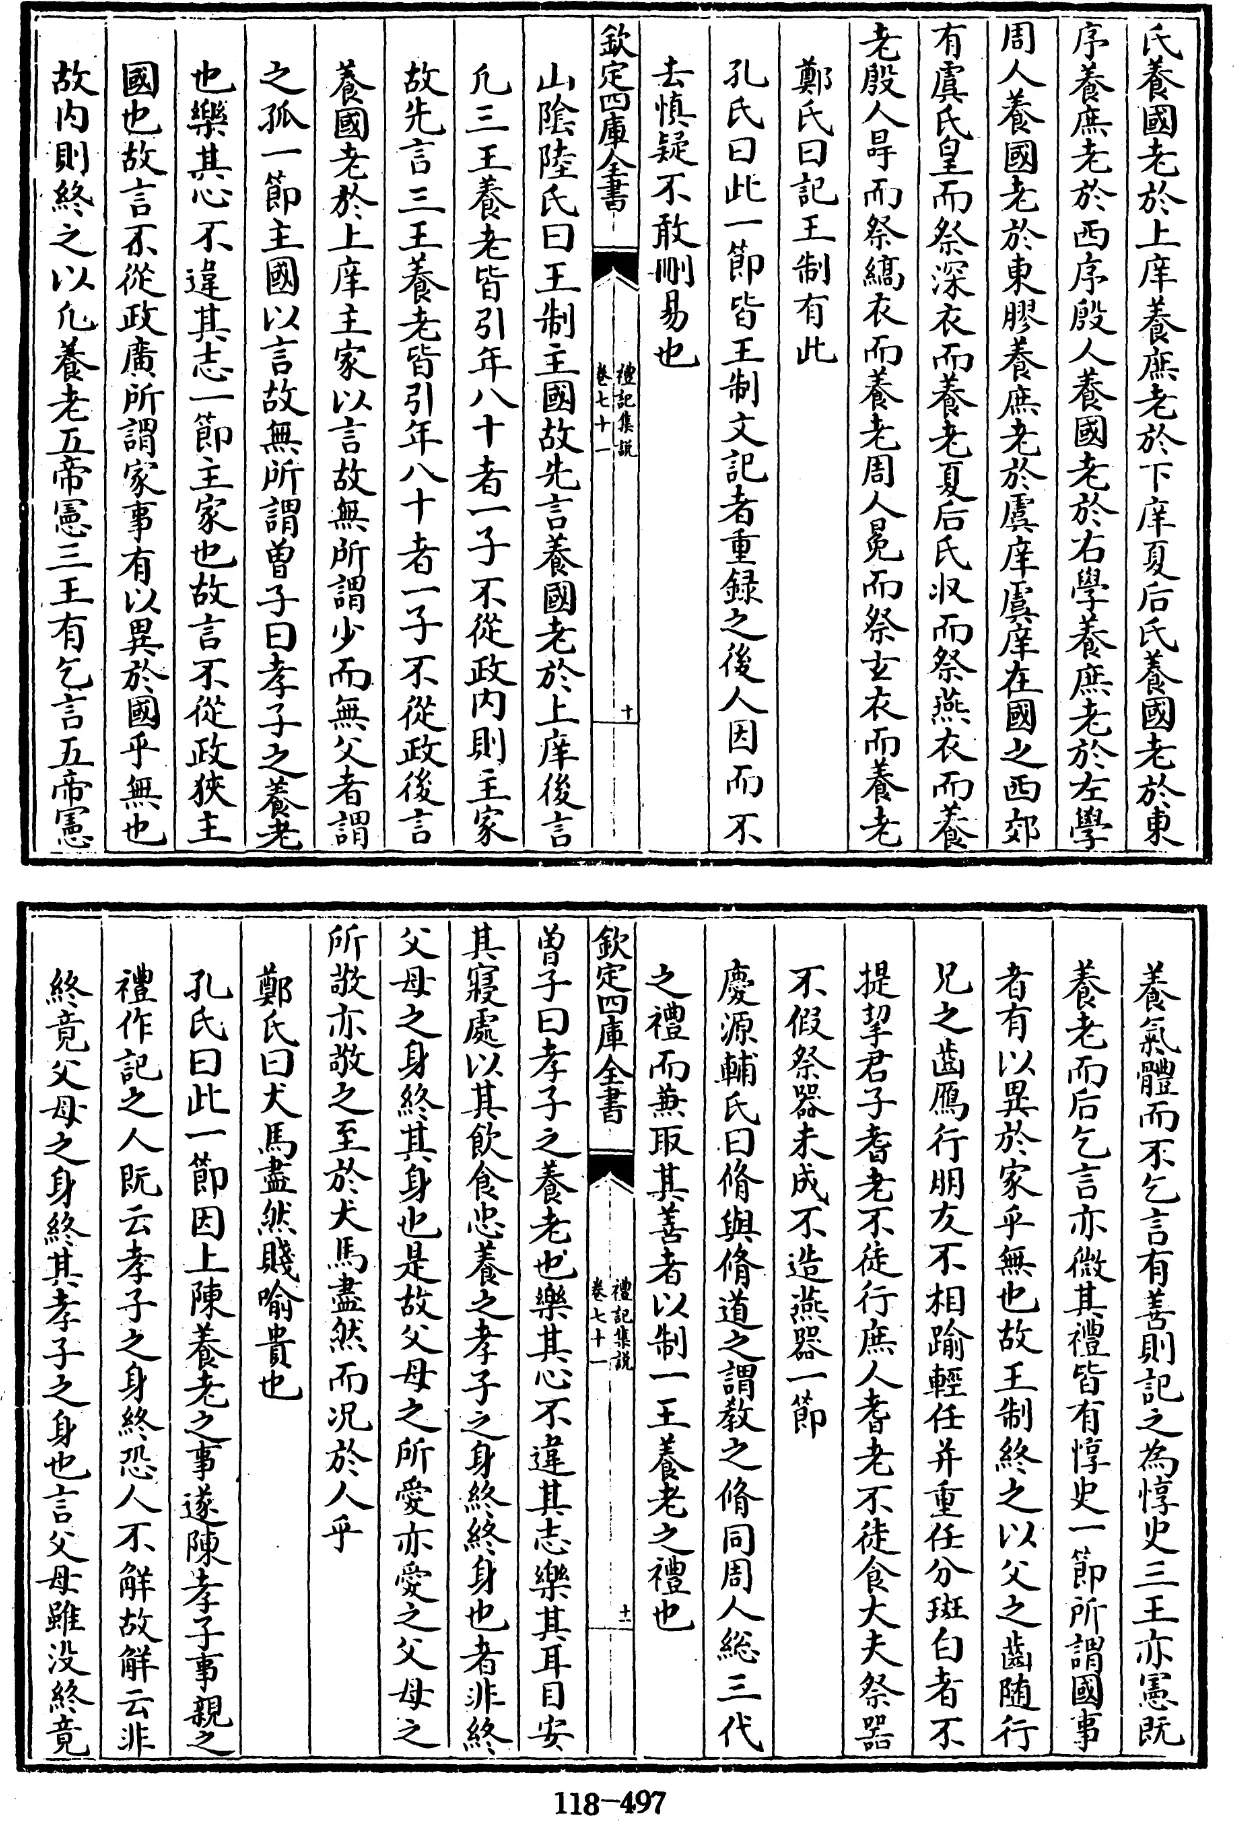 氏養國老於上庠養庶老於下庠夏后氏養國老於東
序養庶老於西序殷人養國老於右學養庶老於左學
周人養國老於東膠養庶老於虞庠虞庠在國之西郊
有虞氏皇而祭深衣而養老夏后氏收而祭燕衣而養
老殷人冔而祭縞衣而養老周人冕而祭玄衣而養老
鄭氏曰記王制有此
孔氏曰此一節皆王制文記者重録之後人因而不
去慎疑不敢刪易也
欽定四庫全書
禮記集說
卷七十一
十
山陰陸氏曰王制主國故先言養國老於上庠後言
凢三王養老皆引年八十者一子不從政内則主家
故先言三王養老皆引年八十者一子不從政後言
養國老於上庠主家以言故無所謂少而無父者謂
之孤一節主國以言故無所謂曽子曰孝子之養老
也樂其心不違其志一節主家也故言不從政狹主
國也故言不從政廣所謂家事有以異於國乎無也
故内則終之以凢養老五帝憲三王有乞言五帝憲
養氣體而不乞言有善則記之為惇史三王亦憲既
養老而后乞言亦微其禮皆有惇史一節所謂國事
者有以異於家乎無也故王制終之以父之齒随行
兄之齒鴈行朋友不相踰輕任并重任分斑白者不
提挈君子耆老不徒行庶人耆老不徒食大夫祭器
不假祭器未成不造燕器一節
慶源輔氏曰脩與脩道之謂教之脩同周人総三代
之禮而兼取其善者以制一王養老之禮也
欽定四庫全書
禮記集說
卷七十一
十一
曽子曰孝子之養老也樂其心不違其志樂其耳目安
其寢處以其飲食忠養之孝子之身終終身也者非終
父母之身終其身也是故父母之所愛亦愛之父母之
所敬亦敬之至於犬馬盡然而况於人乎
鄭氏曰犬馬盡然賤喻貴也
孔氏曰此一節因上陳養老之事遂陳孝子事親之
禮作記之人既云孝子之身終恐人不解故解云非
終竟父母之身終其孝子之身也言父母雖没終竟
118-497